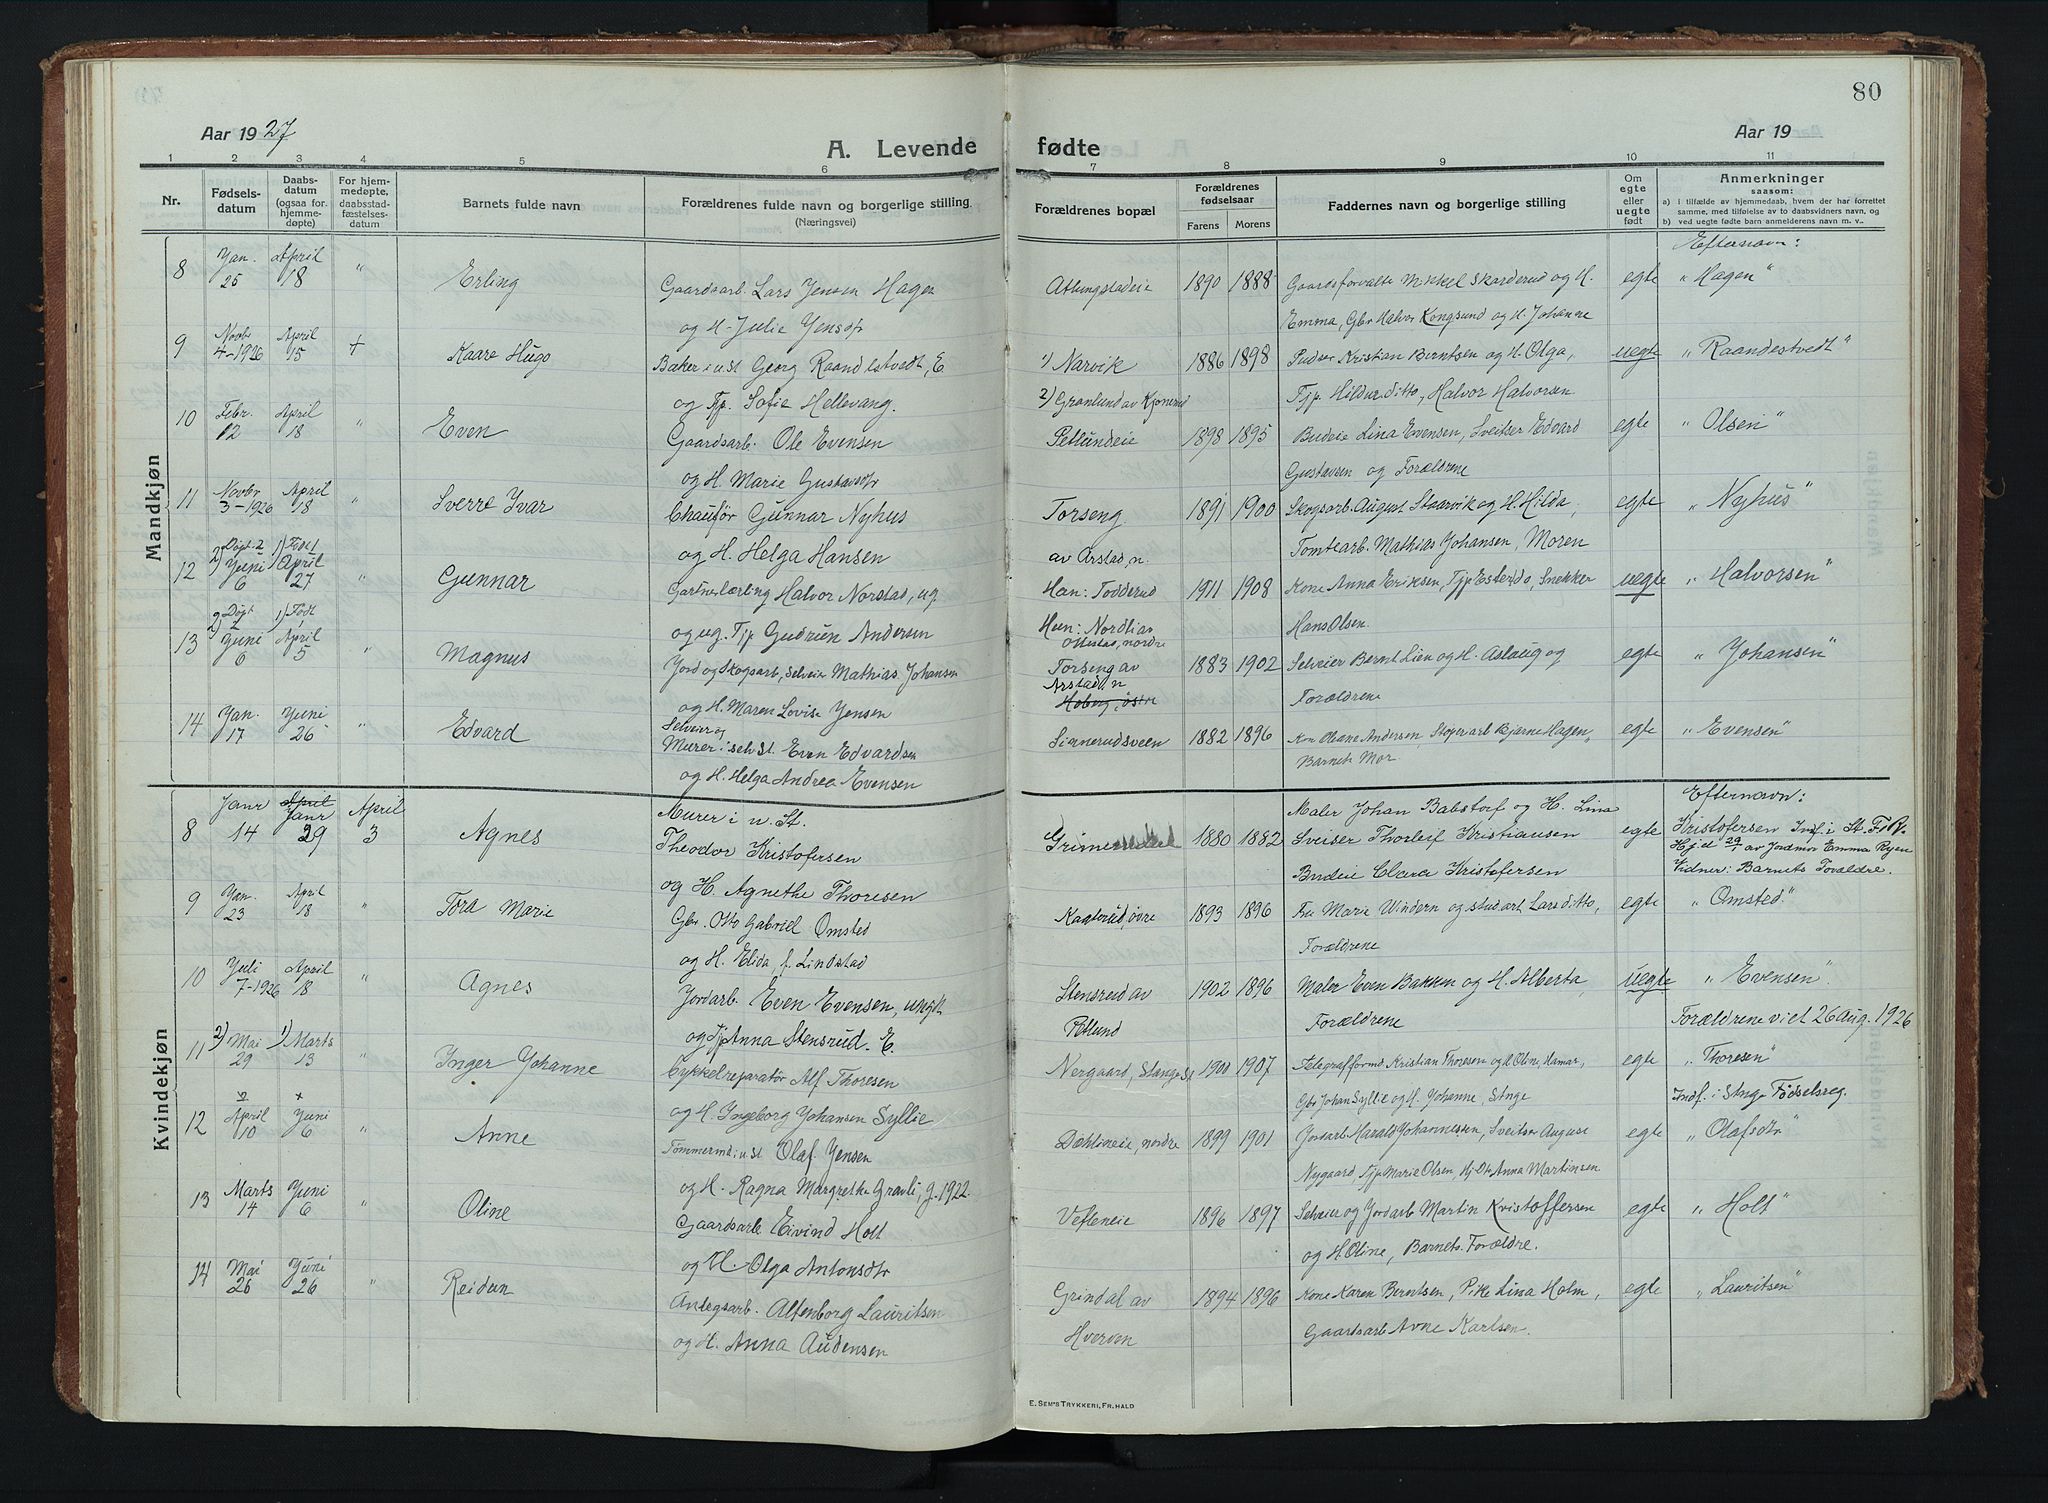 80
Aar 1927
Aar 19
A. Levende fødte
1 2 3 4 5 6 7 8 9 10 11
Nr.
Fødsels-
datum
Daabs-
datum
(ogsaa for
hjemme-
døpte)
For hjem-
medøpte,
daabsstad-
fæstelses-
datum
Barnets fulde navn
Forældrenes fulde navn og borgerlige stilling
(Næringsvei)
Forældrenes bopæl
Forældrenes
fødselsaar
Farens Morens
Faddernes navn og borgerlige stilling
Om
egte
eller
uegte
født
Anmerkninger
saasom:
a) i tilfælde av hjemmedaab, hvem der har forrettet
samme, med tilføielse av to daabsvidners navn, og
b) ved uegte fødte barn anmelderens navn m. v.
Mandkjøn
Efternavn:
8 Jan. 25 April 18 " Erling Gaardsarb. Lars Jensen Hagen Atlungstadeie 1890 1888 Gaardsforvalte Mikkel Skarderud og H. egte " Hagen "
og H. Julie Jensdtr Emma, Gbr Halvor Kongsund og H. Johanne
9 Novbr 4-1926 April 15 + Kaare Hugo Baker i u. St Georg Raandestvedt, E 1) Narvik 1886 1898 Pudser Kristian Berntsen og H. Olga, uegte " Raandestvedt "
og Tjp. Sofie Hellevang. 2) Grønlund av Kjonerud Tjp. Hildur ditto, Halvor Halvorsen
10 Febr. 12 April 18 " Even Gaardsarb. Ole Evensen Petlundeie 1898 1895 Budeie Lina Evensen, Sveitser Edvard egte " Olsen "
og H. Marie Gustavsdtr Gustavsen og Forældrene
11 Novbr 3-1926 April 18 " Sverre Ivar Chaufør Gunnar Nyhus Torseng 1891 1900 Skogsarb. August Staarvik og H. Hilda, egte " Nyhus "
og H. Helga Hansen av Arstad, n. Tomtearb. Mathias Johansen, Moren
12 2) Døpt Juni 6 1) Født April 27 " Gunnar Gartnerlærling Halvor Norstad, ug Han: Todderud 1911 1908 Kone Anna Eriksen, Tjp Ester do, Snekker uegte " Halvorsen "
og ug. Tjp Gudrun Andersen Hun: Nordlia, Ottestad, nordre Hans Olsen.
13 2) Døpt Juni 6 1) Født April 5 " Magnus Jord og Skogsarb, selveier Mathias Johansen Torseng av 1883 1902 Selveier Bernt Lien og H. Aslaug og egte " Johansen "
og H. Maren Lovise Jensen Arstad, n Hoberg, østre Forældrene
14 Jan. 17 Juni 26 " Edvard Selveier og
Murer i selvst. Even Edvardsen 1882 1896 Kone Oleane Andersen, Støperarb Bjarne Hagen, egte " Evensen "
og H. Helga Andrea Evensen Barnets Mor.
Kvindekjøn
Efternavn:
8 Janr 14 April Janr 29 April 3 Agnes Murer i u. St. Maler Johan Babstorf og H. Lina
Theodor Kristofersen 1880 1882 Sveiser Thorleif Kristiansen egte Kristofersen Indf. i St. F.R.
og H. Agnethe Thoresen Budeie Clara Kristofersen Hjd 29/1 av Jordmor Emma Ryen
Vidner: Barnets Forældre.
9 Jan. 23 April 18 " Tora Marie Gbr. Otto Gabriel Omsted Kaaterud, øvre 1893 1896 Fru Marie Windern og stud art Lars ditto, egte " Omsted "
og H. Elida, f. Lindstad Forældrene
10 Juli 7-1926 April 18 " Agnes Jordarb. Even Evensen, ungk Stensrud av 1902 1896 Maler Even Bakken og H. Alberta, uegte " Evensen "
og Tjp Anna Stensrud. E. Petlund Forældrene Forældrene viet 26 Aug. 1926
11 2) Mai 29 1) Marts 13 " Inger Johanne Cykkelreparatør Alf Thoresen Nergaard, Stange St 1900 1907 Telegrafformd Kristian Thoresen og H Oline, Hamar, egte " Thoresen "
og H. Ingeborg Johansen Syllie Gbr Johan Syllie og H. Johanne, Stnge Indf. i Stnge Fødselsreg.
12 April 10 Juni 6 " Anne Tømmermd i u. St Olaf Jensen Dæhlineie, nordre 1899 1901 Jordarb Harald Johannessen, Sveitser August egte " Olafsdtr "
og H. Ragna Margrethe Gravli, g. 1922. Nygaard, Tjp Marie Olsen, Hj Dtr Anna Martinsen
13 Marts 14 Juni 6 " Oline Gaardsarb Eivind Holt Vefleneie 1896 1897 Selveier og Jordarb Martin Kristoffersen egte " Holt "
og H. Olga Antonsdtr og H. Oline, Barnets Forældre.
14 Mai 26 Juni 26 " Reidun Anlegsarb. Altenborg Lauritsen Grindal av 1894 1896 Kone Karen Berntsen, Pike Lina Holm, egte " Lauritsen "
og H. Anna Audensen Hverven Gaardsarb Arne Karlsen.
E. SEM'S TRYKKERI, FR. HALD